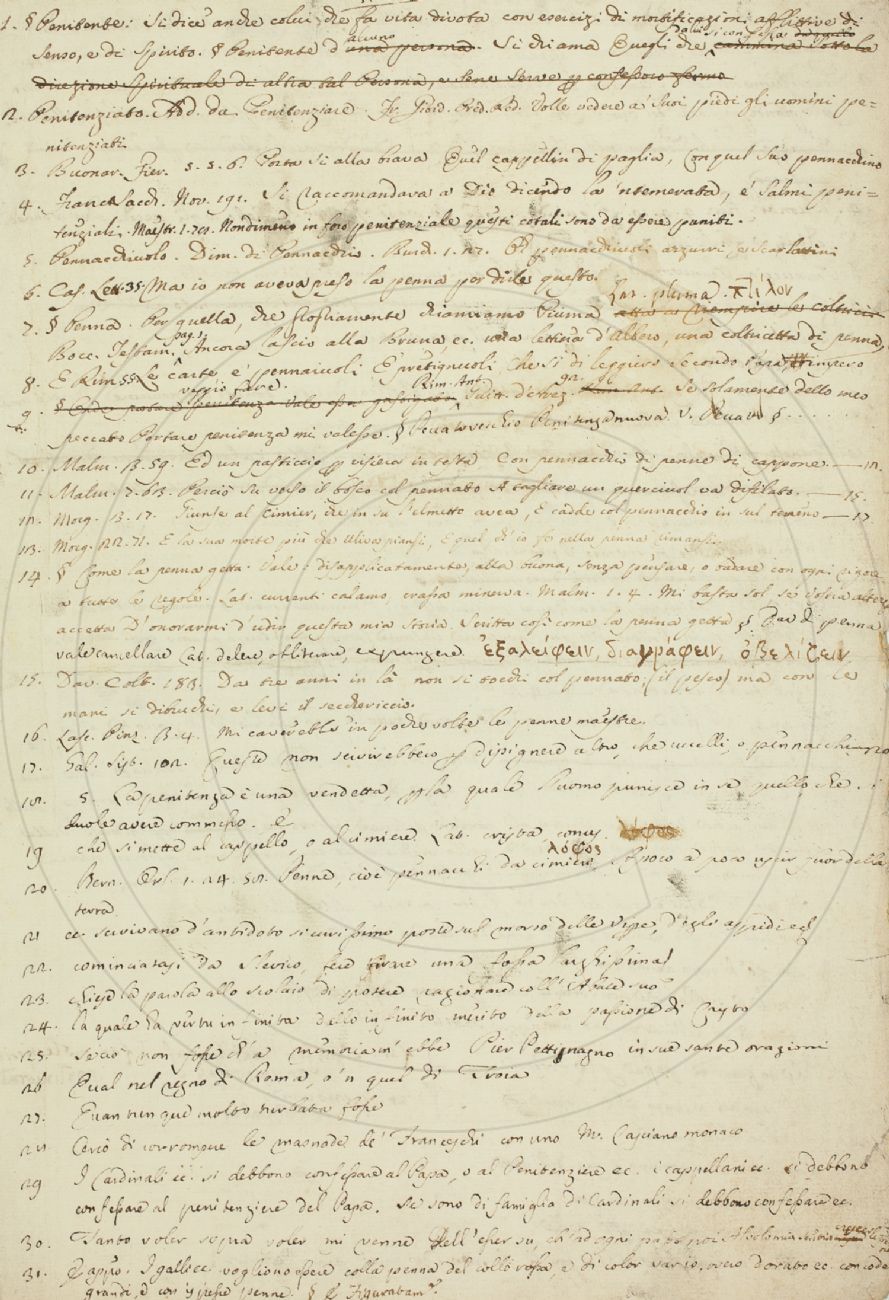 1. § Penitente: Si dice anche colui, che fa vita divota con esercizi di mortificazioni afflittive di
senso, e di spirito. § Penitente d'alcuno una persona. Si chiama Quegli che da lui si confessa. cammina sotto la
direzione spirituale di altra tal Persona, e sene serve p confessoro
2. Penitenziato. Add. da Penitenziare. Fr. Giord. Pred. Volle vedere a' suoi piedi gli uomini pe=
nitenziati.
3. Buonar. Fier. 5. 5. 6. Porta si alla brava Quel cappellin di paglia, Con quel suo pennacchino
4. Franc. Sacch. Nov. 191. Si raccomandava a Dio dicendo la 'ntemerata, e' Salmi peni=
tenziali. Maestr. 1. 70. Nondimeno in foro penitenziale questi cotali sono da essere puniti.
5. Pennacchiuolo. Dim. di Pennacchio. Burch. 1. 12. pennacchiuoli azzurri scarlattini
6. Cas. Lett. 35 Ma io non aveva preso la penna per dirle questo.
Lat. pluma. πτίλον
7. § Penna. Per quella, che nostramente chiamiamo Piuma atta a riempire le coltrici
Bocc. Testam. pag. 1. Ancora lascio alla Bruna, ec. una lettiera d'albero, una coltricetta di penna,
8. E Rim. 55. Le carte e' pennaiuoli E' pretignuoli Che si di leggiero Secondo impero
veggio fare. Rim. Ant.
9. § penitenza vale Guitt. d'Arez. Rim. Ant. Se solamente dello meo
peccato Portare penitenza mi valesse. § Peccato vecchio Penitenza nuova V. Peccato §
10. Malm. 13. 59. Ed un pasticcio p visiera in testa Con pennacchio di penne di cappone. — 12.
11. Malm. 7. 63. Perciò su verso il bosco col pennato A tagliare un querciuol va difilato. — 15.
12. Morg. 13. 17. Giunse al cimier, che in su l'elmetto avea, E cadde col pennacchio in sul terreno — 17
13. Morg. 122. 71. E la sua morte più che Ulivia piansi, E quel ch'io so nella penna rimansi.
14. § Come la penna getta. Vale: disapplicatamente, alla buona, senza pensare, o badare con ogni rigore
a tutte le regole. Lat. currenti calamo, crassa minerva. Malm. 1. 4. Mi basta sol se Vostra altezza
accetta D'onorarmi d'udir questa mia storia Scritta così come la penna getta § Dar di penna
vale cancellare Lat. delere, obliterare, expungere. ἐξαλείφειν, διαγράφειν, ὀβελίζειν
15. Dav. Colt. 183. Da tre anni in là non si tocchi col pennato; (il pesco) ma con le
mani si dibruchi, e levi il seccherriccio.
16. Lasc. Pinz. 3. 4. Mi caverebbe in poche volte le penne maestre.
17. Gal. Sist. 102. Queste non servirebbero p dipignere altro, che uccelli, o pennacchi
18. §. La penitenza è una vendetta, p la quale l'uomo punisce in se quello che
duole avere commesso. è
19 che si mette al cappello, o al cimiere. Lat. crista, conus, λόφος
20. Bern. Orl. 1. 24. 52. Penne, cioè pennacchi da cimiere, A poco a poco uscir fuor della
terra
21 ec. servivano d'antidoto sicurissimo poste sul morso delle vipe, degli aspidi ec.
22. cominciatasi da Slevico, fece tirare una fossa larghissima
23. chiese la parola allo scolaio di potere ragionare coll' Abate suo
24. la quale ha vertù infinita dello infinito merito della passione di Cristo
25. Se ciò non fosse ch'a memoria m'ebbe Pier Pettignagno in sue sante orazioni
26 Qual nel regno di Roma, o 'n quel di Troia
27. Quantunque molto turbata fosse
28 Cercò di corrompere le masnade de' Franceschi con uno Ms. Casciano monaco
29 I Cardinali ec. si debbono confessare al Papa, o al Penitenziere ec. i cappellani ec. si debbono
confessare al penitenziere del Papa. Se sono di famiglia di Cardinali si debbono confessare ec.
30. Tanto voler sopra voler mi venne Dell' esser su, ch'ad ogni passo poi Al volo mi sentia crescer le penne
31. I galli ec. vogliono essere colla penna del collo rossa, e di color vario, overo dorato ec. con code
grandi, e con ispesse penne. § E Figuratam.te